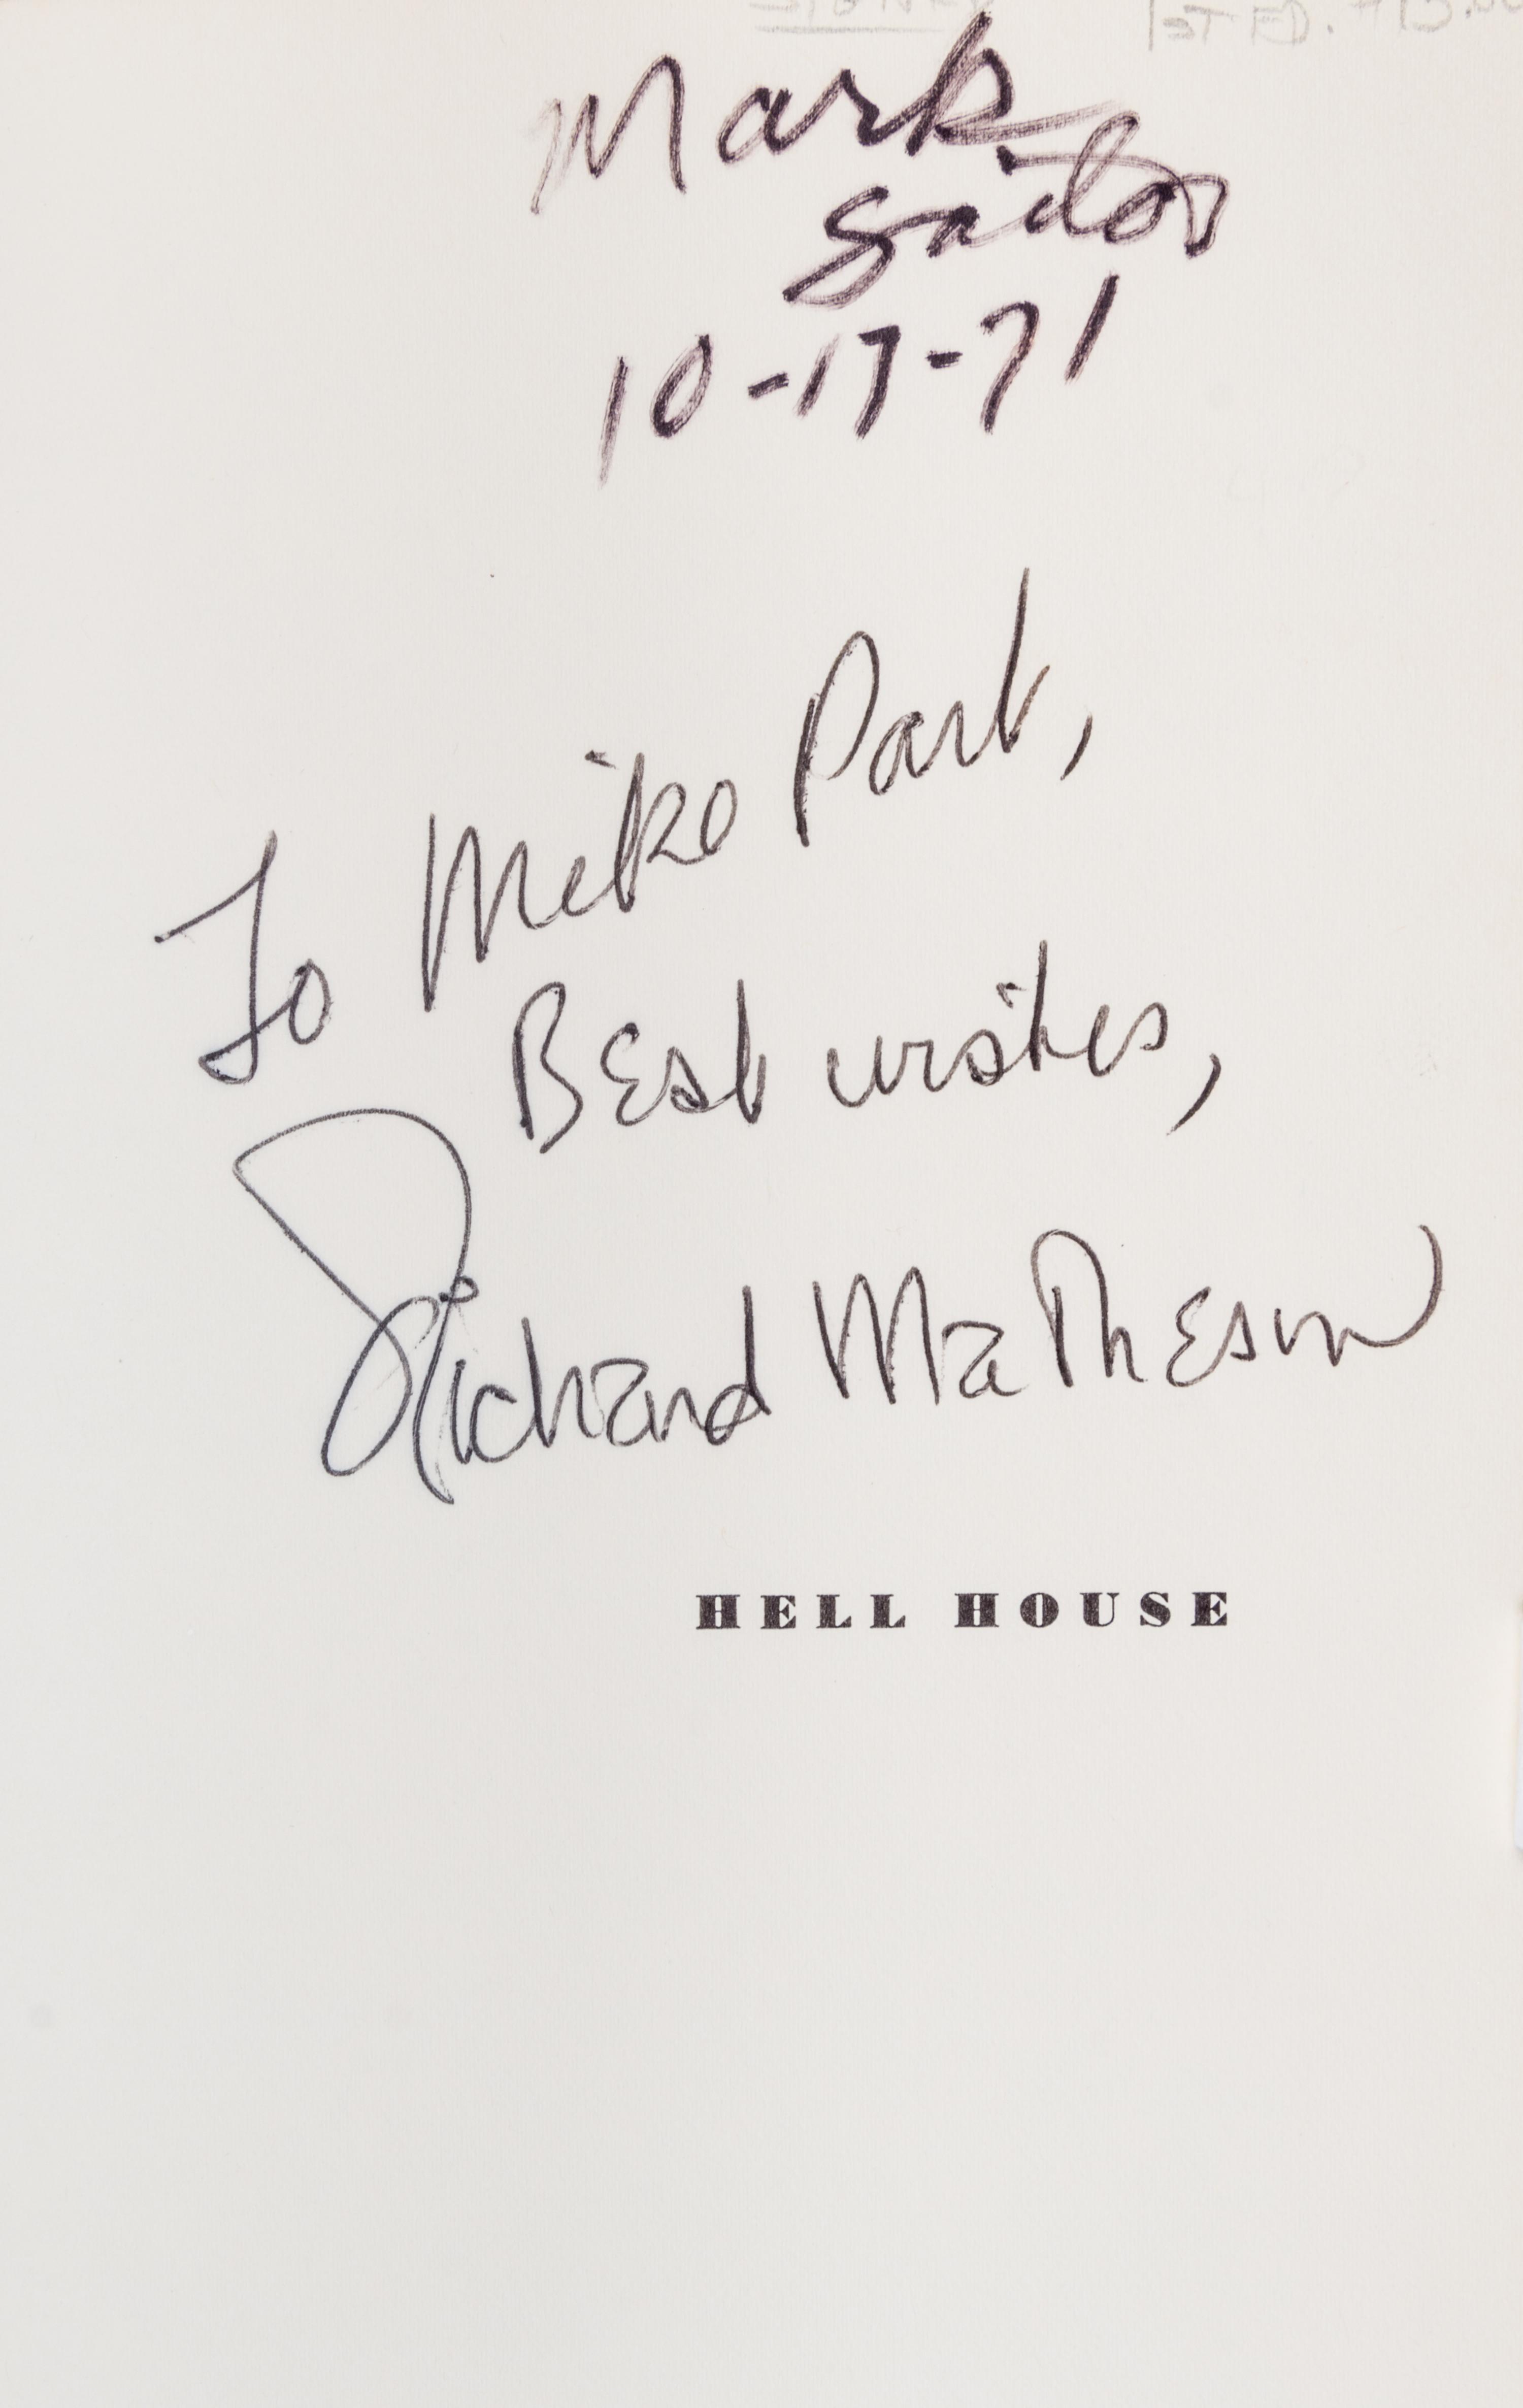 Mark
10-17-71
To Mike Park,
Best wishes,
Richard Matheson
HELL HOUSE